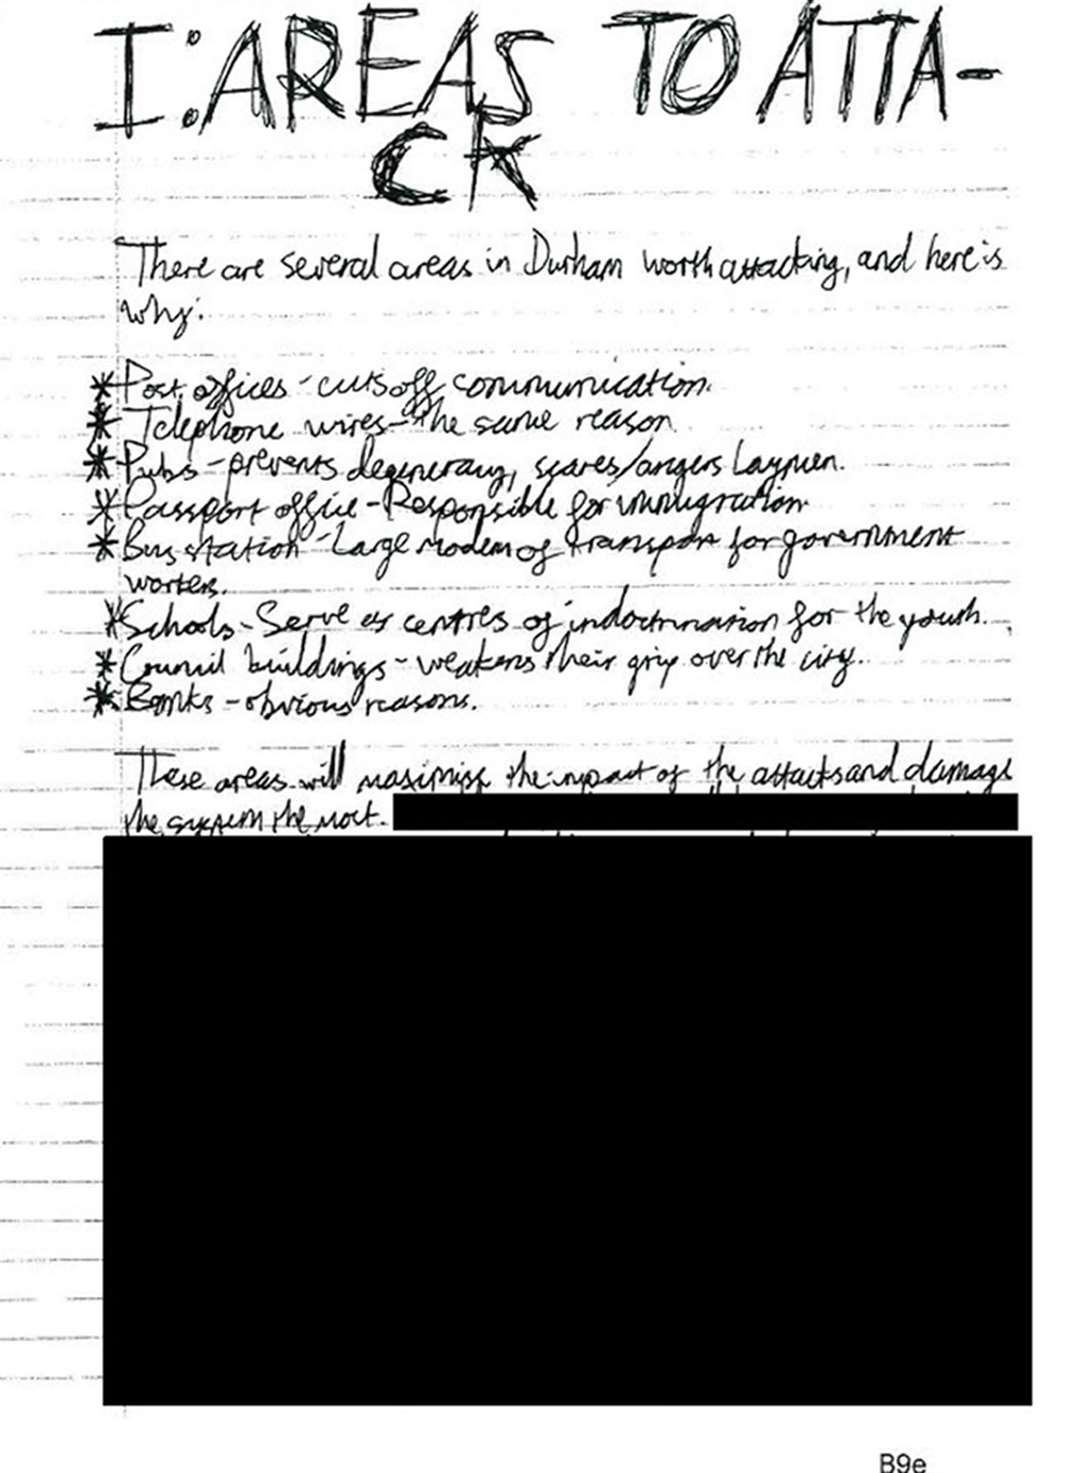 I: AREAS TO ATTA-
CK
There are several areas in Durham worth attacking, and here is
why:
* Post offices - cuts off communication.
* Telephone wires - the same reason
* Pubs - prevents degeneracy, scares/angers Laymen.
* Passport office - Responsible for immigration.
* Bus station - Large modem of transport for government
workers.
* Schools - Serve as centres of indoctrination for the youth.
* Council buildings - weakens their grip over the city.
* Banks - obvious reasons.
These areas will maximise the impact of the attacks and damage
the system the most.
B9e